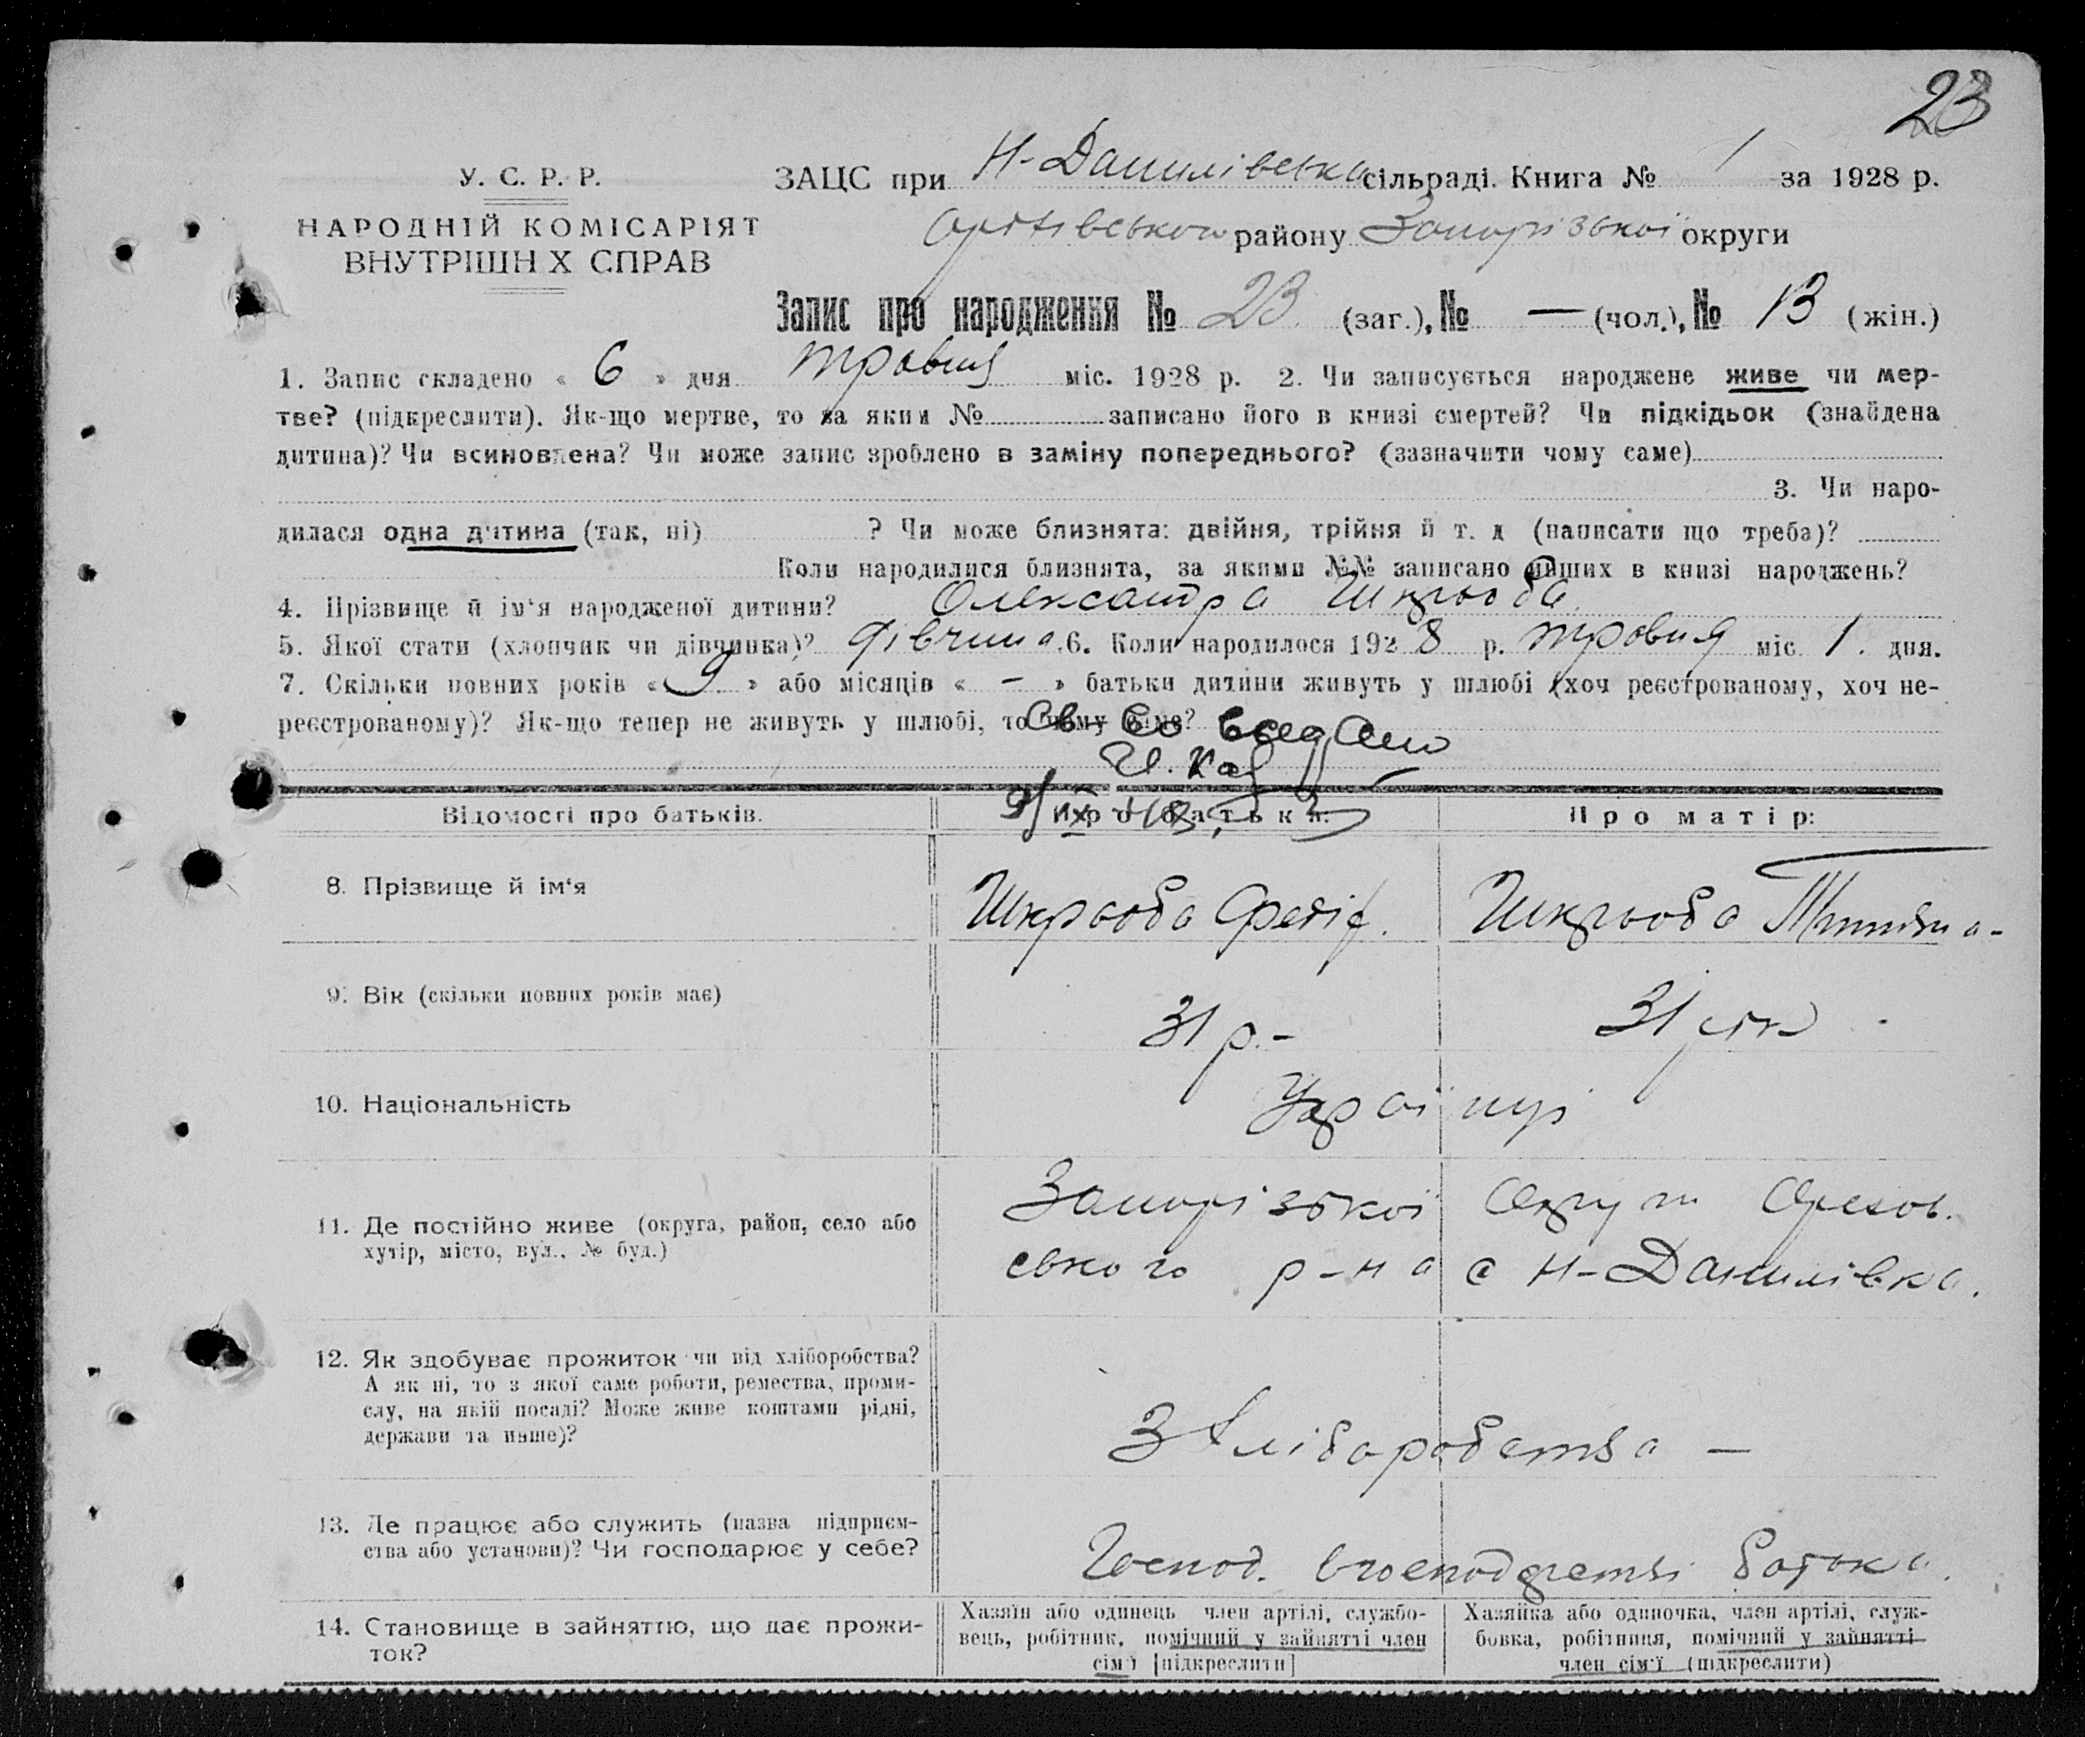 23
У. С. Р. Р.
НАРОДНІЙ КОМІСАРІЯТ
ВНУТРІШН Х СПРАВ
ЗАЦС при Н-Данилівська сільраді. Книга № 1 за 1928 р.
Оріхівського району Запорізької округи
Запис про народження № 23 (заг.), № — (чол.), № 13 (жін.)
1. Запис складено « 6 » дня травня міс. 1928 р. 2. Чи записується народжене живе чи мер-
тве? (підкреслити). Як-що мертве, то за яким № записано його в книзі смертей? Чи підкідьок (знайдена
дитина)? Чи всиновлена? Чи може запис зроблено в заміну попереднього? (зазначити чому саме)
3. Чи наро-
дилася одна дитина (так, ні) ? Чи може близнята: двійня, трійня й т. д (написати що треба)?
Коли народилися близнята, за якими №№ записано инших в книзі народжень?
4. Прізвище й ім'я народженої дитини? Олександра Шкрьоба
5. Якої стати (хлопчик чи дівчинка)? дівчина. 6. Коли народилося 1928 р. травня міс. 1. дня.
7. Скільки повних років « 9 » або місяців « — » батьки дитини живуть у шлюбі (хоч реєстрованому, хоч не-
реєстрованому)? Як-що тепер не живуть у шлюбі, то чому саме?
Св-во
Відомості про батьків.
Про батька:
Про матір:
8. Прізвище й ім'я
Шкрьоба
Шкрьоба
9. Вік (скільки повних років має)
31 р.-
31 рік
10. Національність
Українці
11. Де постійно живе (округа, район, село або
хутір, місто, вул., № буд.)
Запорізької Округи Орехов.
ського р-на с Н-Данилівка.
12. Як здобуває прожиток чи від хліборобства?
А як ні, то з якої саме роботи, ремества, проми-
слу, на якій посаді? Може живе коштами рідні,
держави та инше)?
З Хліборобства —
13. Де працює або служить (назва підприєм-
ства або установи)? Чи господарює у себе?
Господ. в господарстві батька.
14. Становище в зайняттю, що дає прожи-
ток?
Хазяїн або одинець член артілі, службо-
вець, робітник, помічний у зайнятті член
сім'ї [підкреслити]
Хазяйка або одиночка, член артілі, служ-
бовка, робітниця, помічний у зайнятті
член сім'ї (підкреслити)